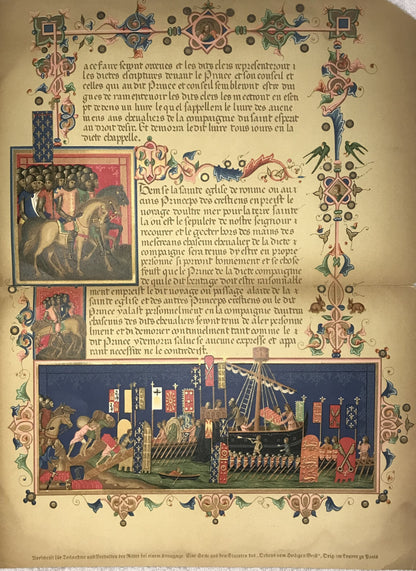 a ce faire seront ordenes et les dits clers representeront
les dictes escriptures devant le Prince et son conseil et
celles qui au dit Prince et conseil sembleront estre dig
gues de ramentenoir les dits clers les mectront en esc
ipt dedens un livre le quel sappellera le livre des avene
mens aus chevaliers de la compaignie du saint esperit
au droit desir Et demorra le dit livre tous iours en la
dicte chappelle
de la sainte eglise de romme ou au
cuns Princeps des crestiens
voyage doultre mer pour la terre sainte
la ou est le sepulcre de nostre seigneur
recouvrer et le gecter hors des mains des
mescreans chascun chevalier de la dicte
compaignie sera tenus dy estre en propre
personne si povoit bonnement et se chose
feust que le Prince de la dicte compaignie
de qui le dit heritage doit estre raisonnable
ment empreist le dit voyage ou passage alaide de la
sainte eglise et des autres Princeps crestiens ou le dit
Prince yalast personnelment en la compaignie dautrui
chascuns des dits chevaliers seroit tenu de aler personnel
ment et di demorer continuelment tant comme le
dit Prince y demorra salue se aucune expresse et appa
rant necessite ne le contredeist
Vorschrift für Teilnahme und Verhalten der Ritter bei einem Kreuzzuge. Eine Seite aus den Statuten des „Ordens vom Heiligen Geist“, Orig. im Louvre zu Paris